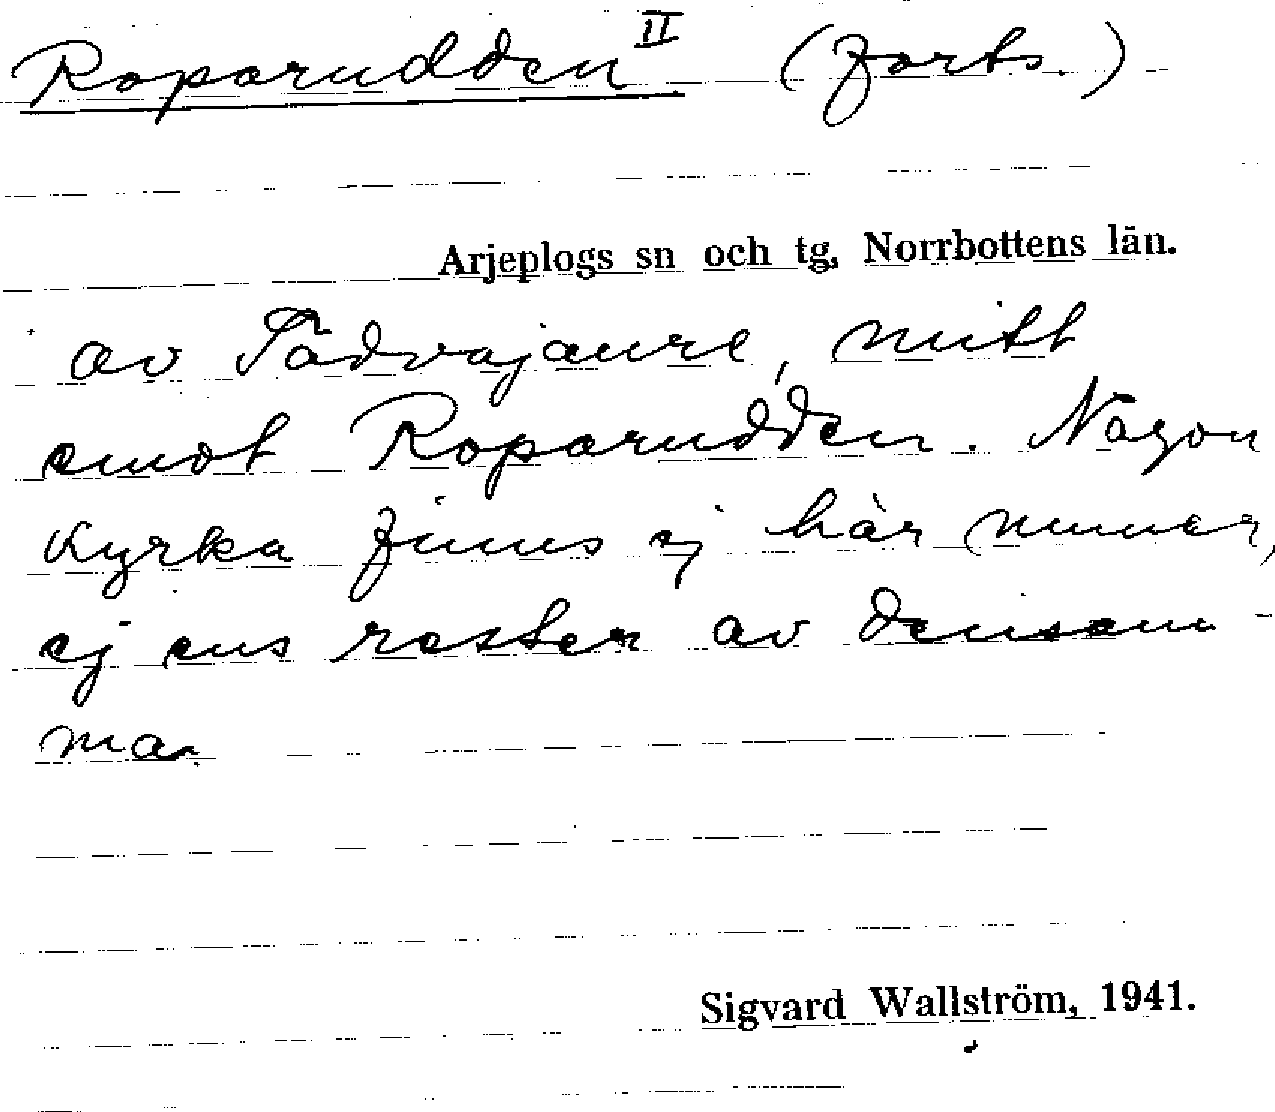 Roparudden II (forts.)
Arjeplogs sn och tg, Norrbottens län.
av Tädvajaure, mitt
emot Roparudden. Någon
kyrka finns ej här numer,
ej ens rester av densam-
ma.
Sigvard Wallström, 1941.